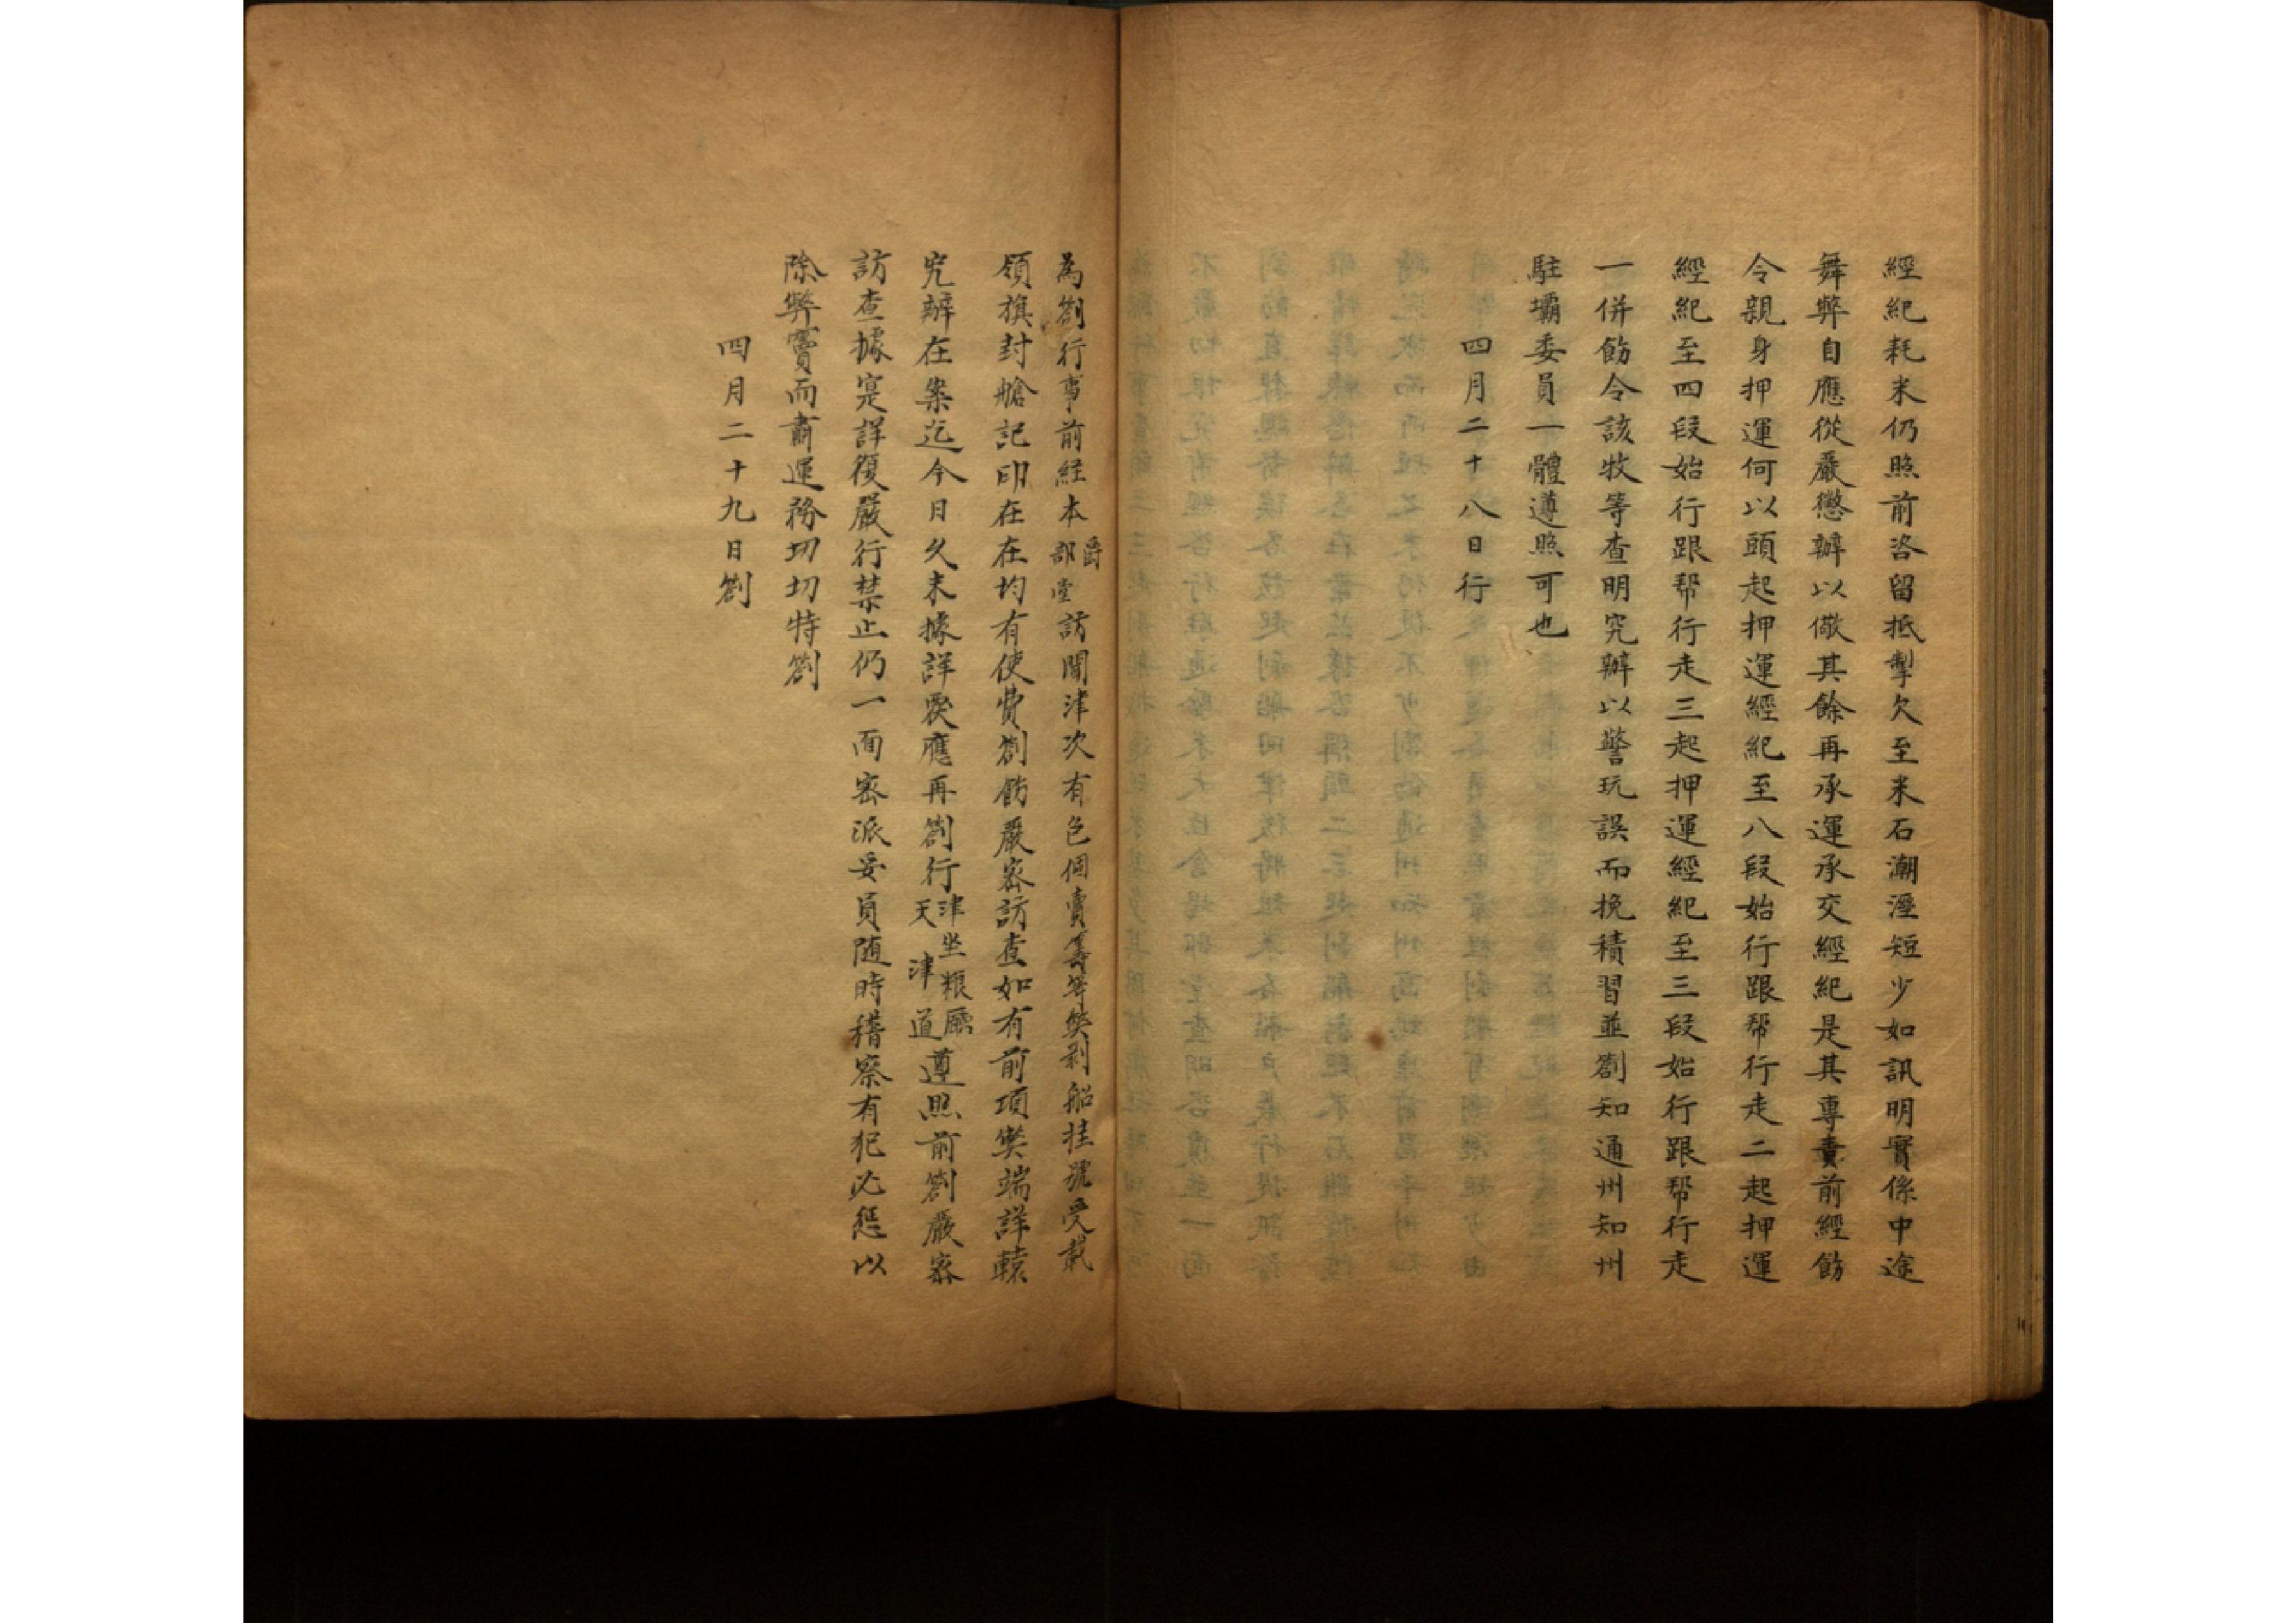 經紀耗米仍照前咨留抵掣欠至米石潮溼短少如訊明實係中途
舞弊自應從嚴懲辦以儆其餘再承運承交經紀是其專責前經飭
令親身押運何以頭起押運經紀至八段始行跟帮行走二起押運
經紀至四段始行跟帮行走三起押運經紀至三段始行跟帮行走
一併飭令該牧等查明究辦以警玩誤而挽積習並劄知通州知州
駐壩委員一體遵照可也
四月二十八日行
為劄行事前経本爵部堂訪聞津次有包個賣籌等獘剥船挂號受載
領旗封艙記印在在均有使費劄飭嚴宻訪查如有前項獘端詳轅
究辦在案迄今日久未據詳覆應再劄行津坐粮廳天津道遵照前劄嚴宻
訪查據寔詳復嚴行禁止仍一面宻派妥員随時稽察有犯必懲以
除弊竇而肅運務切切特劄
四月二十九日劄